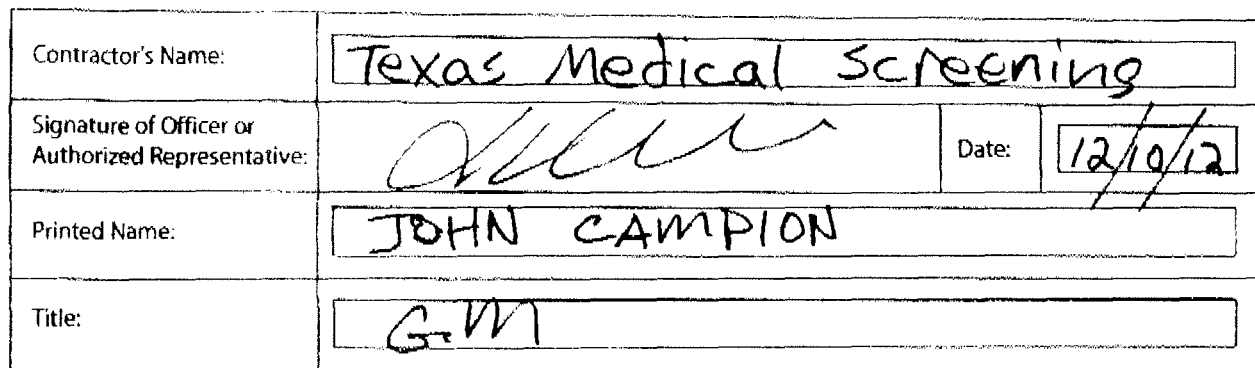 Contractor's Name: Texas Medical Screening
Signature of Officer or
Authorized Representative: Date: 12/10/12
Printed Name: JOHN CAMPION
Title: G.M